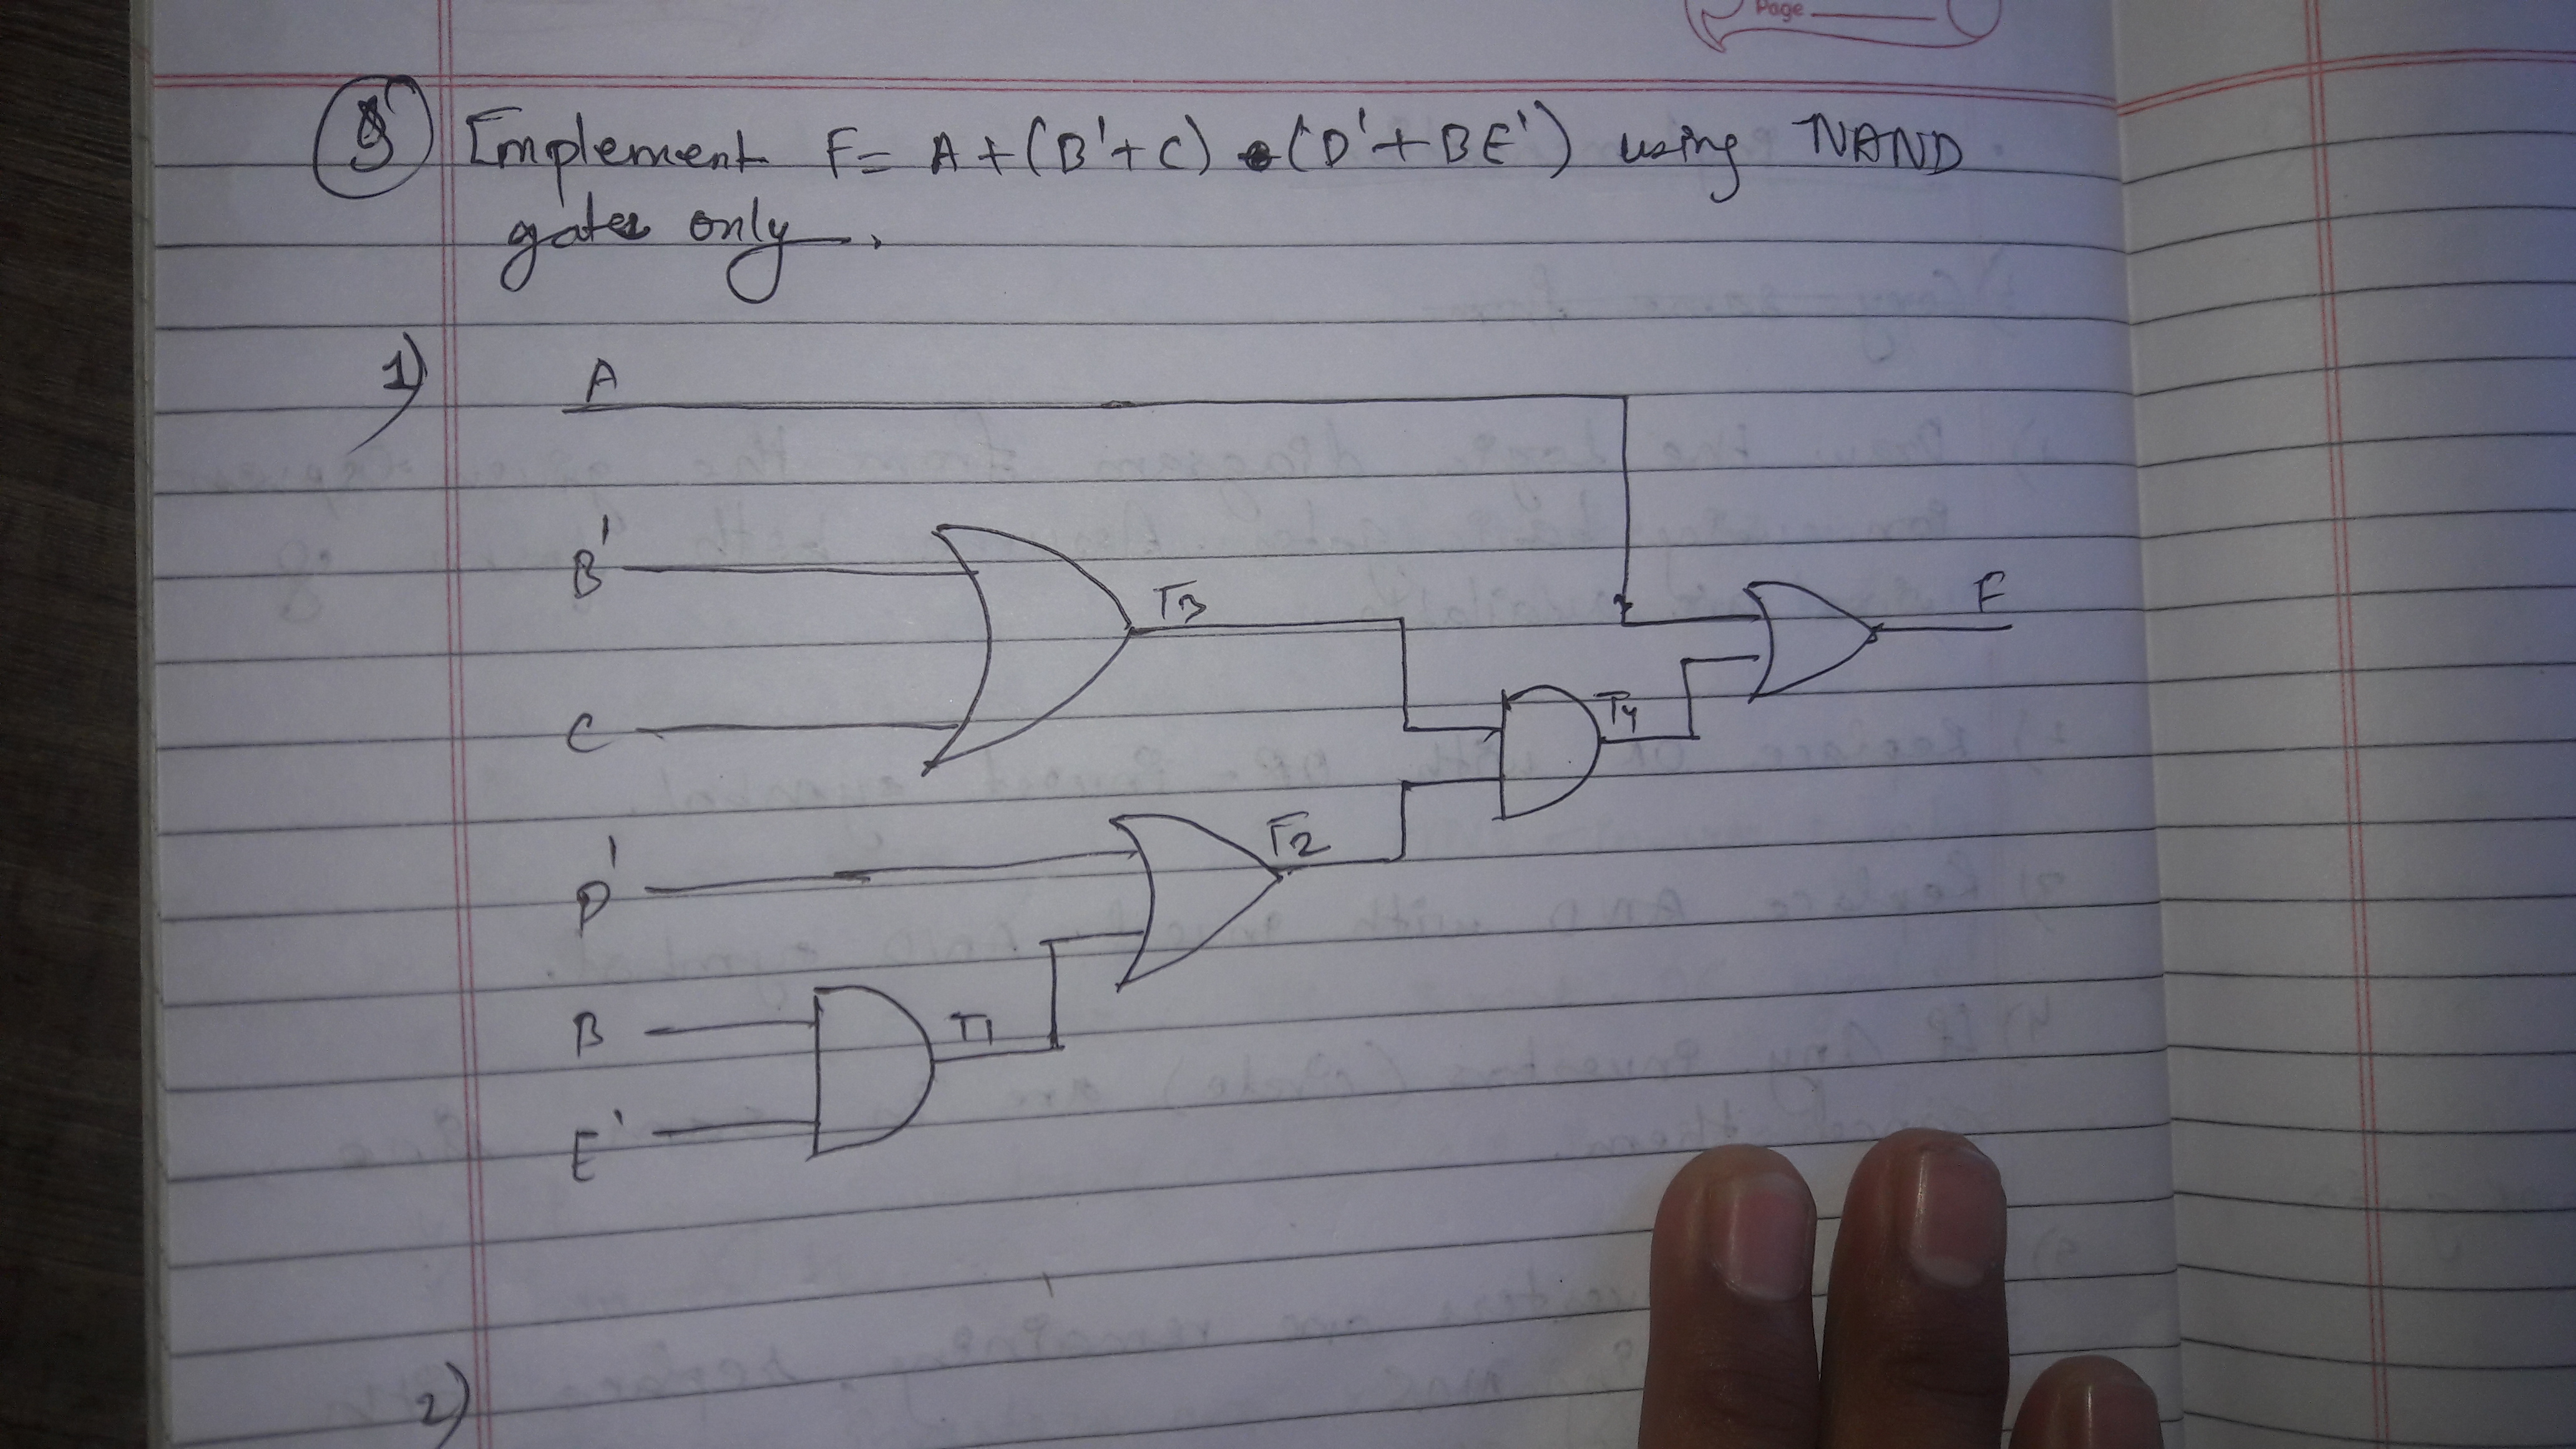 Page
Implement F = A + (B' + C) • (D' + BE') using NAND
gates only.
1)
A
B'
T3
F
C
T4
T2
D'
B
T1
E'
2)